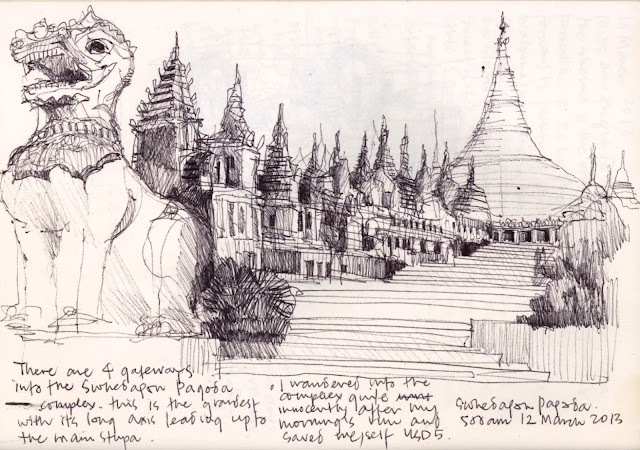 There are 4 gateways
into the Swhedagon Pagoda
complex. this is the grandest
with its long axis leading up to
the main stupa.
I wandered into the
complex quite
innocently after my
morning's run and
saved myself USD5.
Swhedagon Pagoda.
12 March 2013